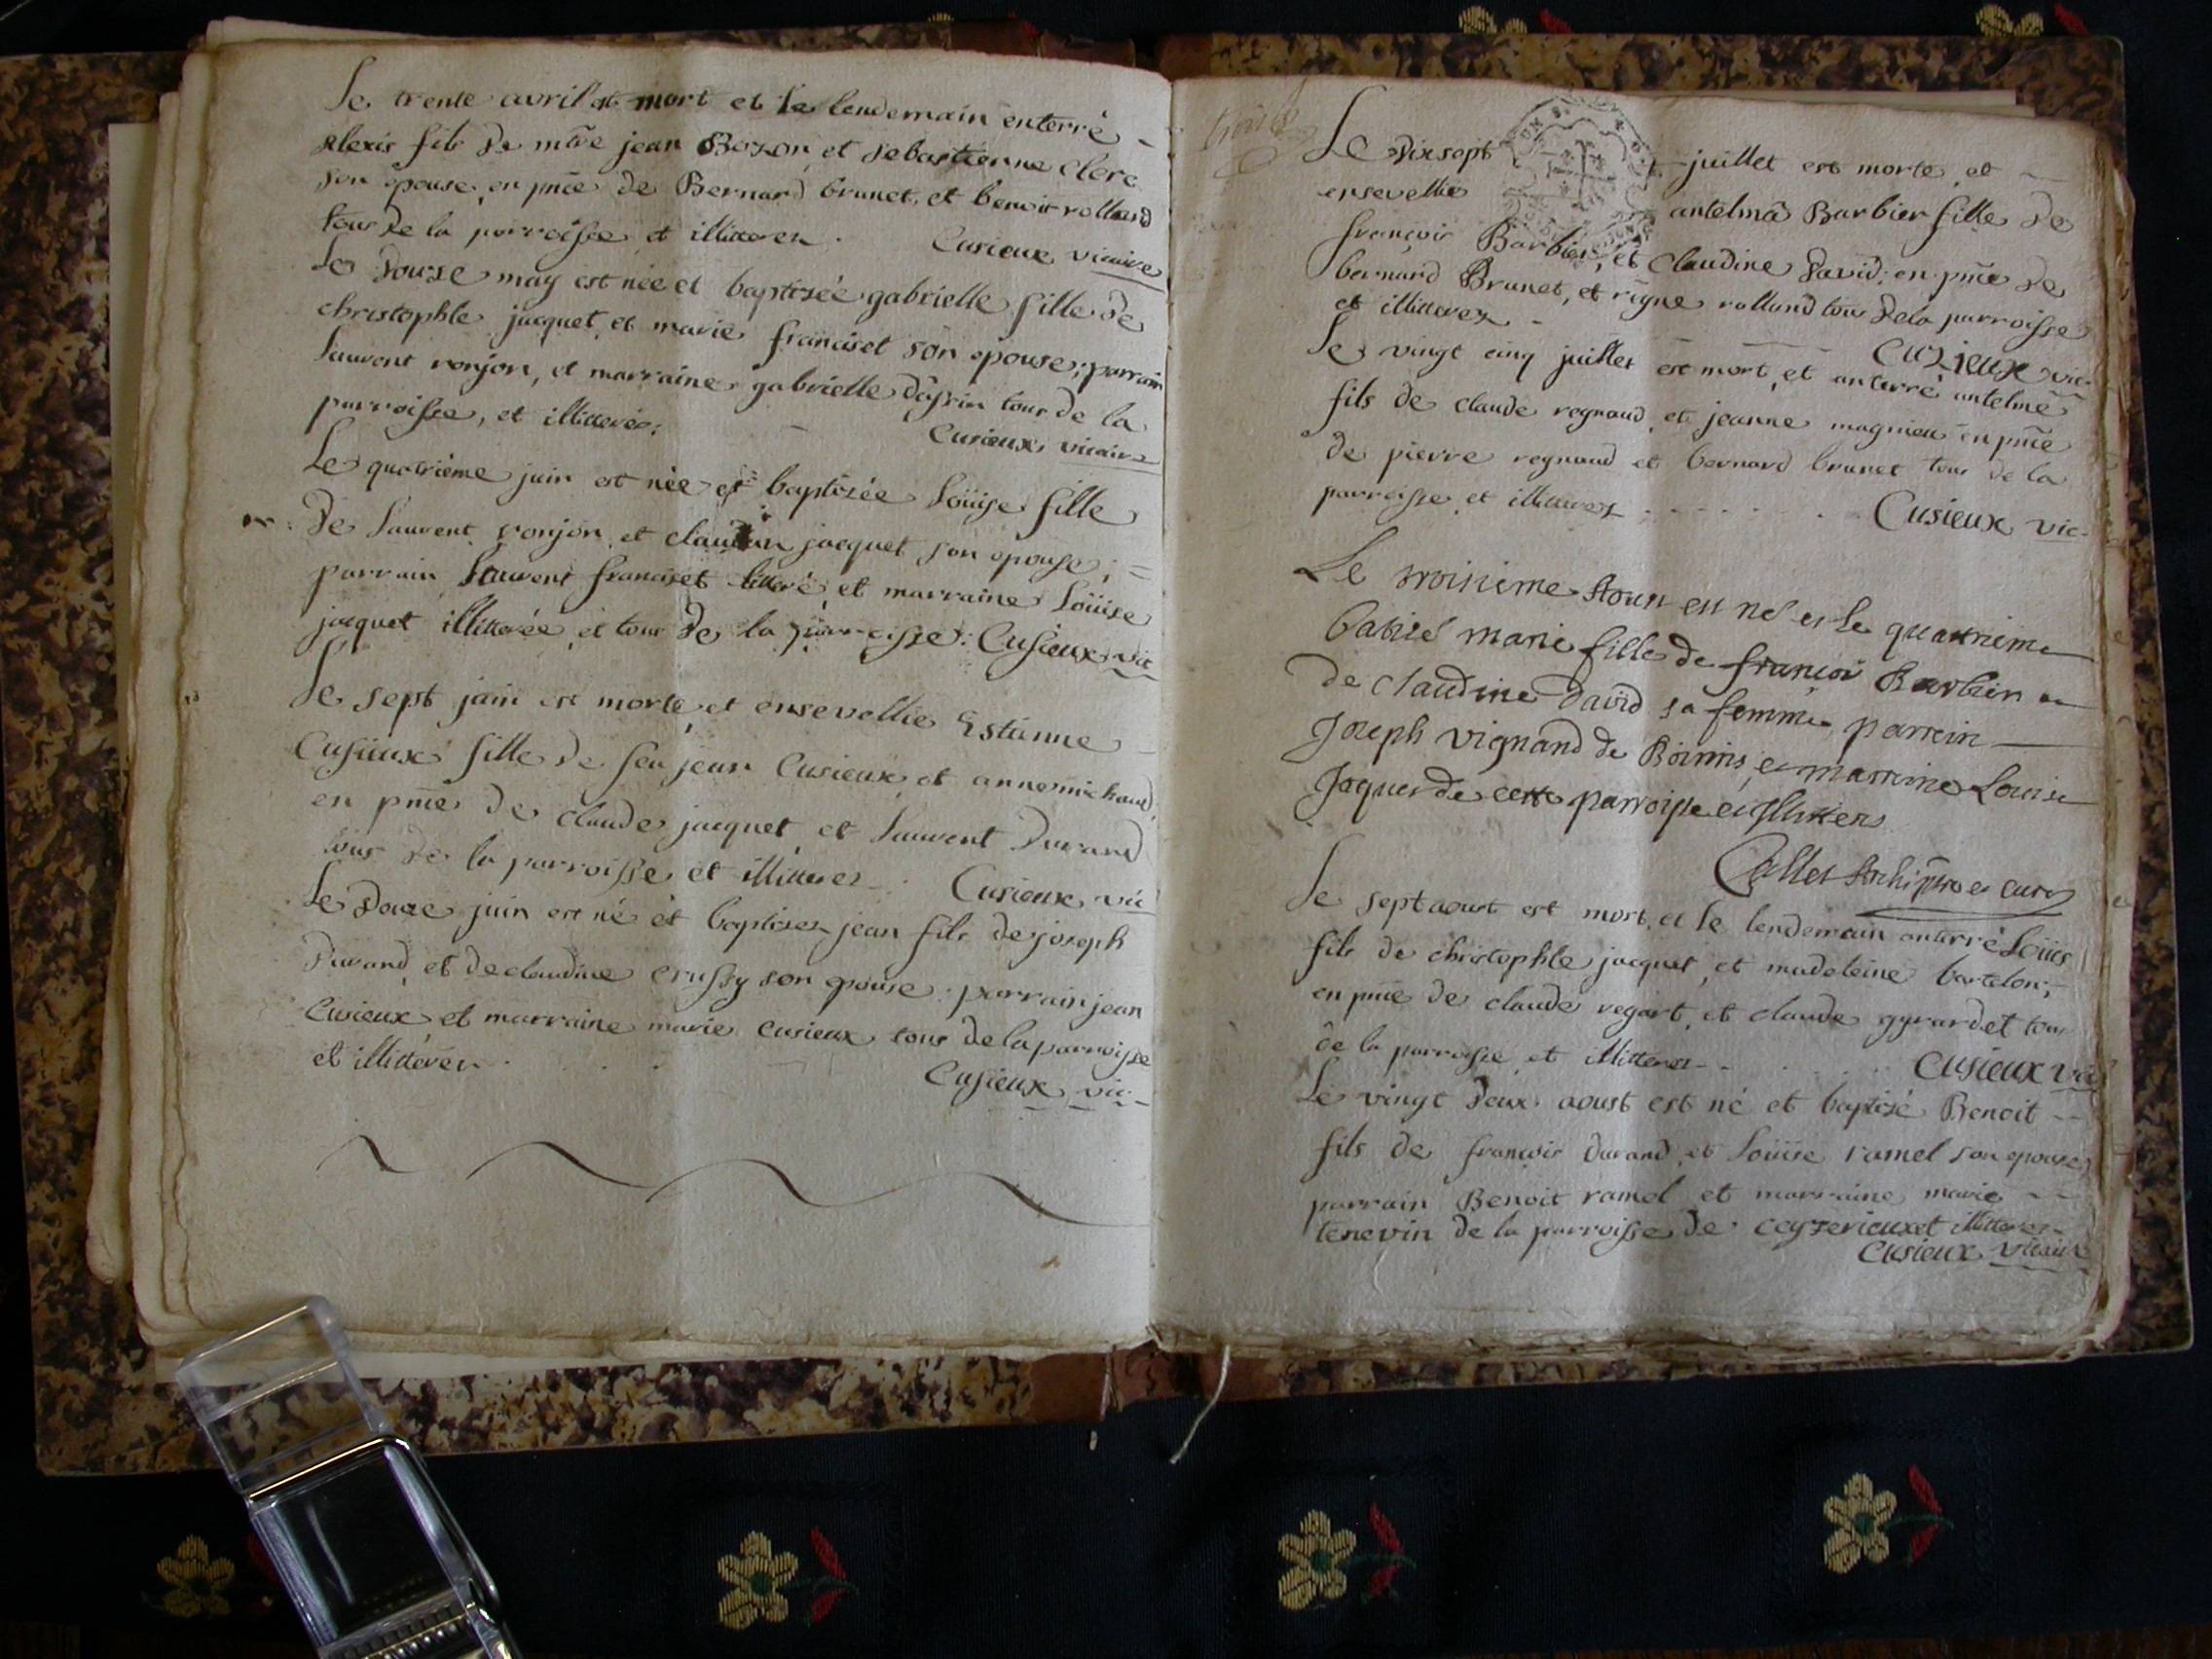 Le trente avril est mort et le lendemain enterré
alexis fils de mtre jean Bozon et sebastienne clerc
son epouse, en pnce de Bernard brunet, et benoit rolland
tous de la parroisse et illitterez. Cusieux vicaire
Le douze may est née et baptisée gabrielle fille de
christophle jacquet et marie franciset son epouse; parrain
laurent ronjon, et marraine gabrielle tous de la
parroisse, et illitterés. Cusieux vicaire
Le quatrième juin est née et baptisée Loüise fille
de laurent ronjon et jacquet son epouse;
parrain laurent franciset litteré et marraine Loüise
jacquet illitterée et tous de la parroisse. Cusieux vic
Le sept juin est morte et ensevellie Estienne
Cusieux fille de feu jean Cusieux et anne michaud,
en pnce de claude jacquet et laurent Durand
tous de la parroisse et illitterez. Cusieux vic
Le douze juin est né et baptisez jean fils de joseph
Durand et de claudine crussy son epouse; parrain jean
Cusieux et marraine marie cusieux tous de la parroisse
et illitterez.
Cusieux vic
Le dix sept juillet est morte et
ensevellie antelma Barbier fille de
françois Barbier, et Claudine David; en pnce de
bernard Brunet, et rolland tous de la parroisse
et illitterez
Cuzieux vic
Le vingt cinq juillet est mort et anterré antelme
fils de claude regnaud et jeanne magnieu en pnce
de pierre regnaud et bernard brunet tous de la
parroisse et illitterez Cusieux vic
Le troisieme Aoust est né et le quatrieme
Batisé marie fille de françois Barbier et
de Claudine David sa femme, parrein
Joseph vignand de et marreine Louise
Jaquet de cette parroisse et Illitters
Callet Archiptre et curé
Le sept aoust est mort, et le lendemain anterré Loüis
fils de christophle jacquet et madeleine bartelon;
en pnce de claude regart, et claude gyrardet tous
de la parroisse et illitterez Cusieux vic
Le vingt deux aoust est né et baptisé Benoit
fils de françois Durand et Loüise ramel son epouse
parrain Benoit ramel et marraine marie
tenevin de la parroisse de ceyzerieux et illitterez
Cusieux vicaire